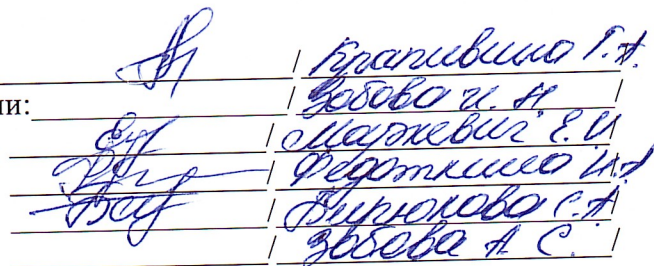 / Крапивина Г.А.
ии: / Зобова И. Н /
/ Маркевич Е.И
/ Федоткина И.А
/ Бирюкова С.А /
/ Зобова А С. /